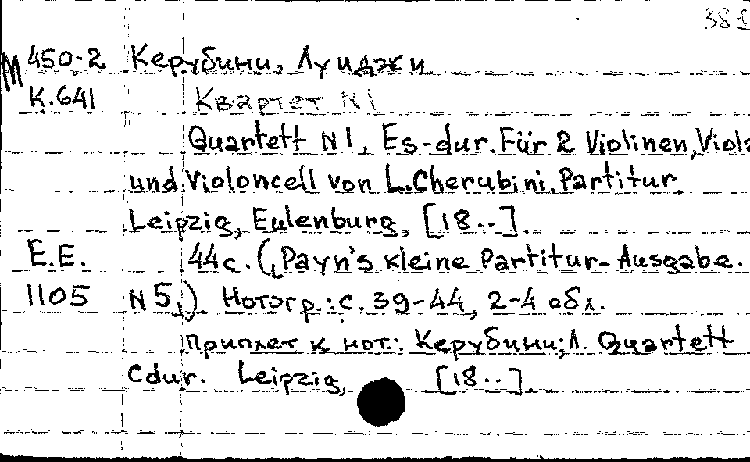 381
М 450-2 Керубини, Луиджи
К.641 Квартет N1
Quartett N1, Es-dur. Für 2 Violinen, Viola
und Violoncell von L. Cherubini. Partitur.
Leipzig, Eulenburg, [18..].
E.E. 44c. (Payn's kleine Partitur-Ausgabe.
1105 N5.) Нотогр.: с. 39-44, 2-4 обл.
Приплет к нот.: Керубини, Л. Quartett
Cdur. Leipzig, [18..].